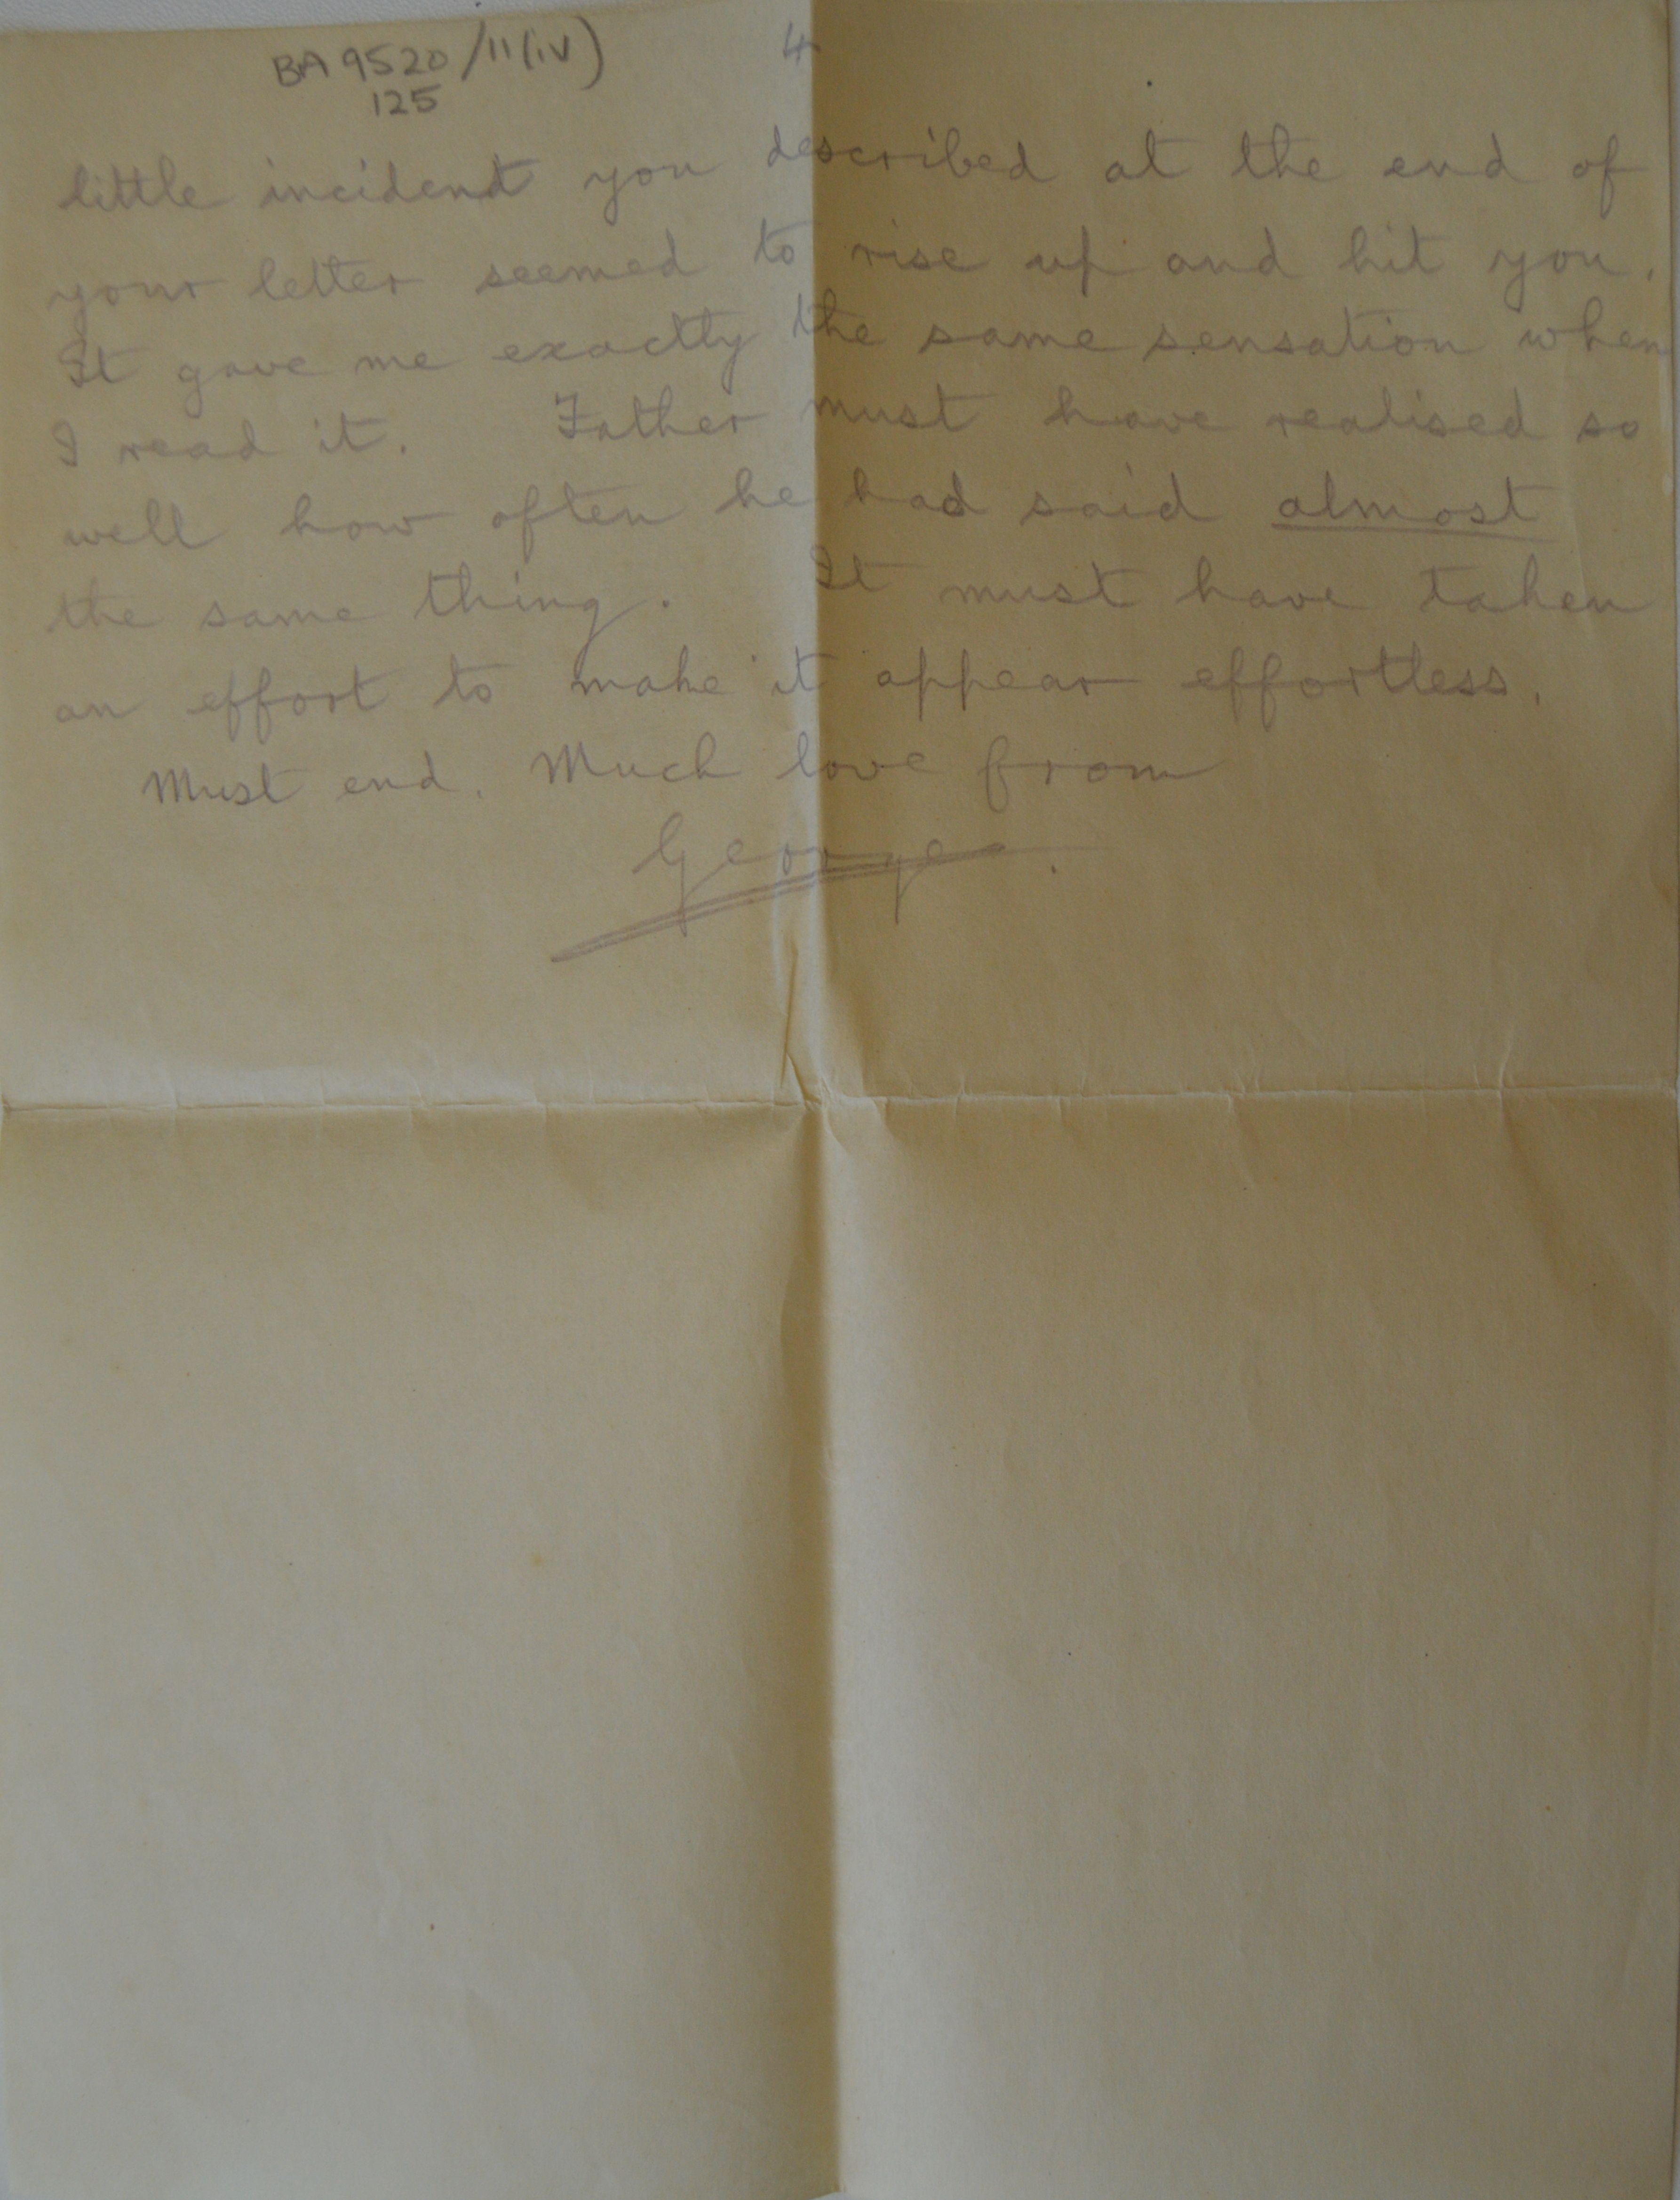 BA 9520/11(iv)
125
4
little incident you described at the end of
your letter seemed to rise up and hit you.
It gave me exactly the same sensation when
I read it. Father must have realised so
well how often he had said almost
the same thing. It must have taken
an effort to make it appear effortless.
Must end. Much love from
George.